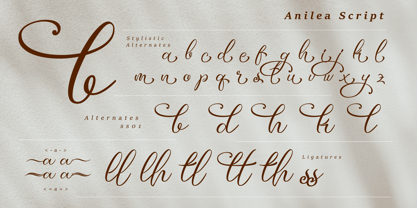 Anilea Script
b
Stylistic
Alternates
a b c d e f g h i j k l
m n o p q r s t u v w x y z
Alternates
ss01
b d h k l
<-a->
a a
a a
<=a=>
ll lh tl tt th ss
Ligatures